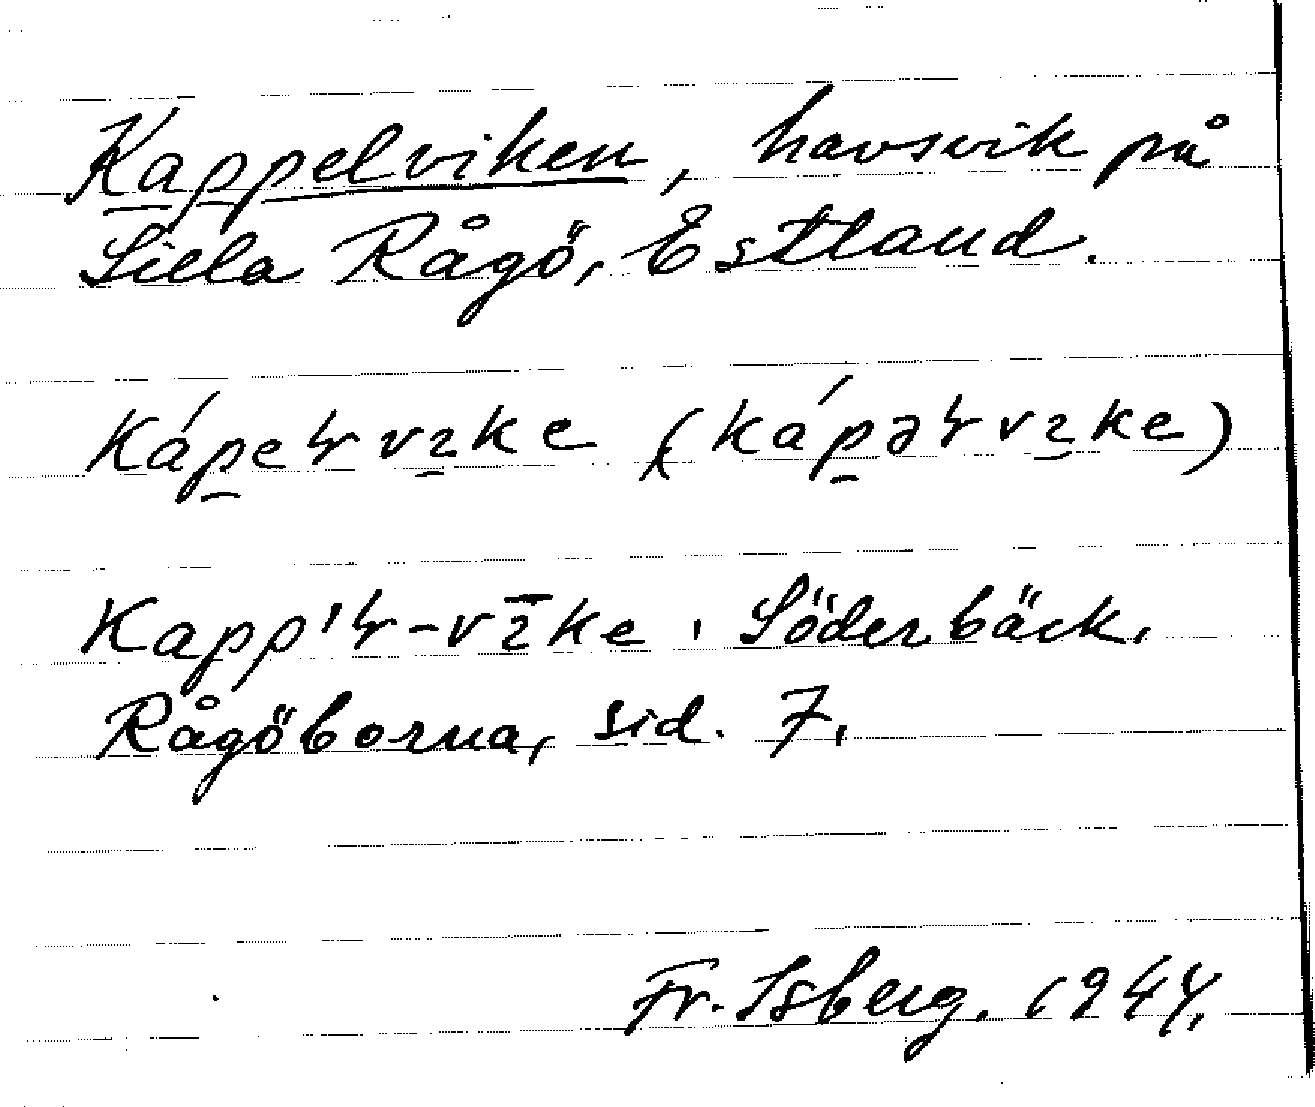 Kappelviken, havsvik på
Lilla Rågö, Estland.
Kápeɬvɪke (kápəɬvɪke)
Kapp'ɬ-vɪ̄ke. Söderbäck,
Rågöborna, sid. 7.
Fr. Isberg. 1944.